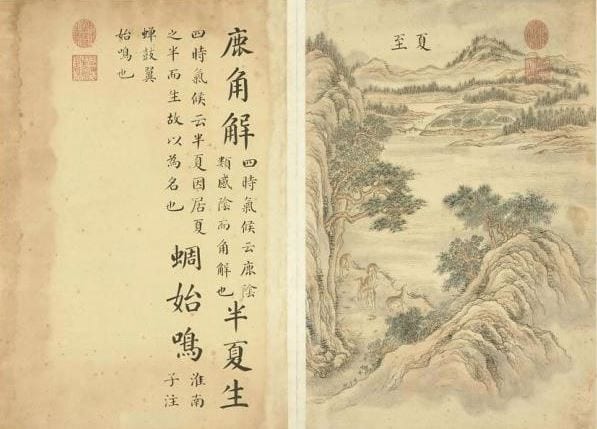 夏至
鹿角解
四時氣候云鹿陰
類感陰而角解也
半夏生
四時氣候云半夏因居夏
之半而生故以為名也
蜩始鳴
淮南
子注
蟬鼓翼
始鳴也